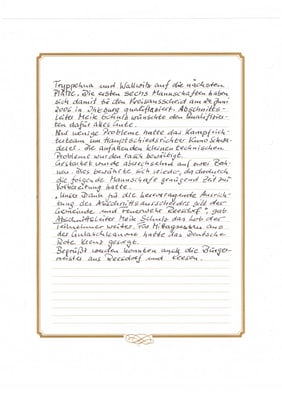 Tryppehna und Wallwitz auf die nächsten
Plätze. Die ersten sechs Mannschaften haben
sich damit für den Kreisausscheid am 24. Juni
2006 in qualifiziert. Abschnitts-
leiter Meik Schulz wünschte den Qualifizier-
ten dafür alles Gute.
Nur wenige Probleme hatte das Kampfrich-
terteam um Hauptschiedsrichter
Die anfänglichen kleinen technischen
Probleme wurden rasch bewältigt.
Gestartet wurde abwechselnd auf zwei Bah-
nen. Dies bewährte sich wieder, da dadurch
die folgende Mannschaft genügend Zeit zur
Vorbereitung hatte.
"Unser Dank für die hervorragende Ausrich-
tung des Abschnittsausscheides gilt der
Gemeinde und Feuerwehr Reesdorf", gab
Abschnittsleiter Meik Schulz das Lob der
Teilnehmer weiter. Für Mittagessen aus
der Gulaschkanone hatte das Deutsche
Rote Kreuz gesorgt.
Begrüßt werden konnten auch die Bürger-
meister aus Reesdorf und